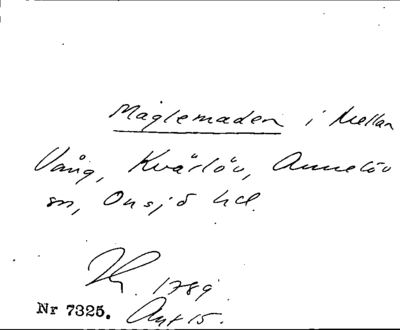 Maglemaden i Mellan
Vång, Kvärlöv, Annelöv
sn, Onsjö hd.
1789
Nr 7325. Akt 15.